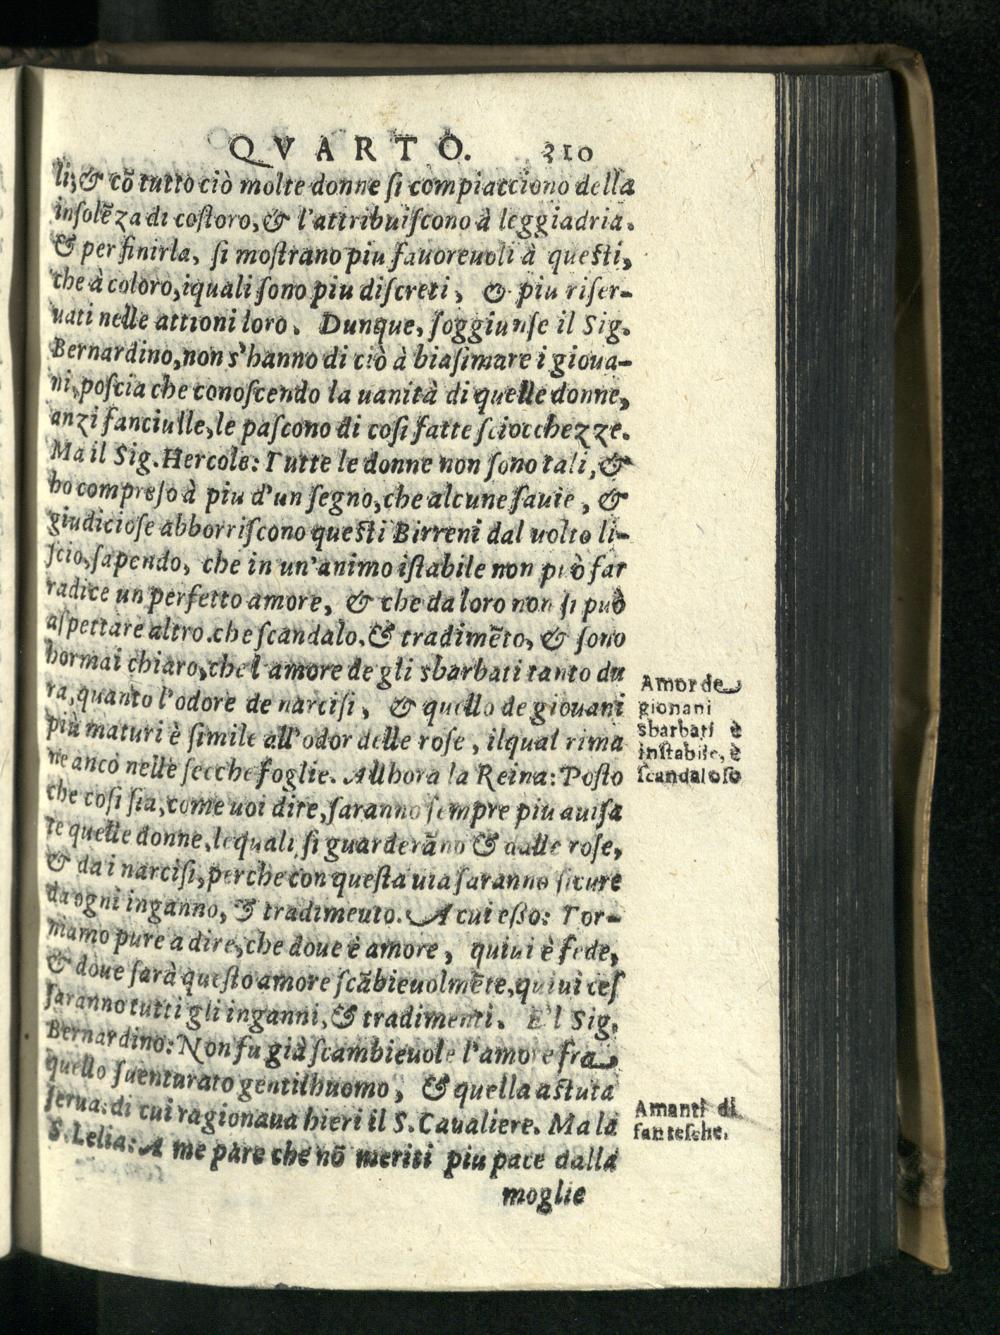 QVARTO. 210
li; & cō tutto ciò molte donne si compiacciono della
insolēza di costoro, & l'attribuiscono à leggiadria.
& per finirla, si mostrano piu fauoreuoli à questi,
che à coloro, iquali sono piu discreti, & piu riser-
uati nelle attioni loro. Dunque, soggiunse il Sig.
Bernardino, non s'hanno di ciò à biasimare i gioua-
ni, poscia che conoscendo la uanità di quelle donne,
anzi fanciulle, le pascono di cosi fatte sciocchezze.
Ma il Sig. Hercole: Tutte le donne non sono tali, &
ho compreso à piu d'un segno, che alcune sauie, &
giudiciose abborriscono questi Birreni dal uolto li-
scio, sapendo, che in un'animo istabile non può far
radice un perfetto amore, & che da loro non si può
aspettare altro che scandalo, & tradimēto, & sono
hormai chiaro, che l'amore de gli sbarbati tanto du
ra, quanto l'odore de narcisi, & quello de giouani
più maturi è simile all'odor delle rose, ilqual rima
ne anco nelle secche foglie. Allhora la Reina: Posto
che cosi sia, come uoi dite, saranno sempre piu auisa
te quelle donne, lequali si guarderāno & dalle rose,
& da i narcisi, perche con questa uia saranno sicure
da ogni inganno, & tradimento. A cui esso: Tor-
niamo pure a dire, che doue è amore, quiui è fede,
& doue sarà questo amore scābieuolmēte, quiui ces
saranno tutti gli inganni, & tradimenti. E'l Sig.
Bernardino: Non fu già scambieuole l'amore fra
quello suenturato gentilhuomo, & quella astuta
serua: di cui ragionaua hieri il S. Caualiere. Ma la
S. Lelia: A me pare che nō meriti piu pace dalla
moglie
Amor de
gionani
sbarbati è
instabile, è
scandaloso
Amanti di
fantesche.